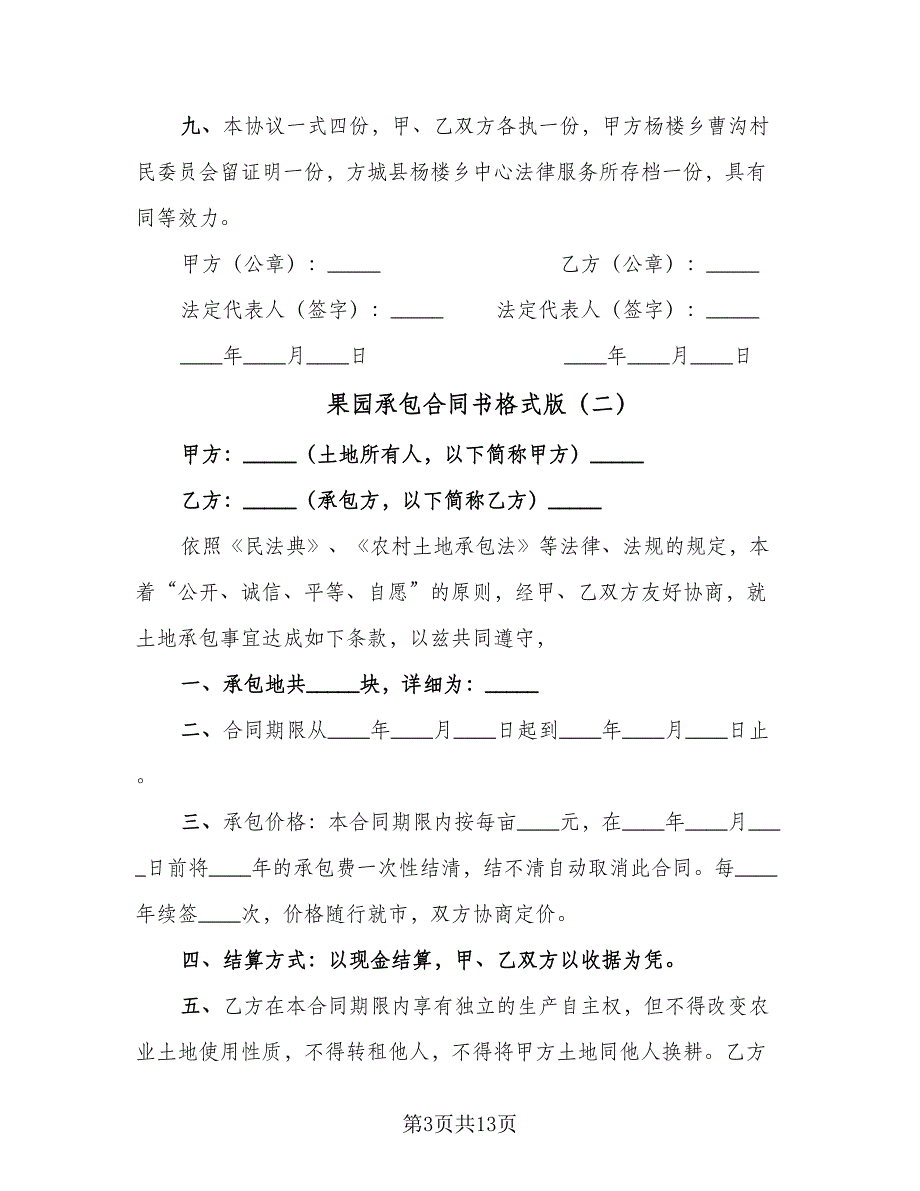 九、本协议一式四份，甲、乙双方各执一份，甲方杨楼乡曹沟村
民委员会留证明一份，方城县杨楼乡中心法律服务所存档一份，具有
同等效力。
甲方（公章）：_____ 乙方（公章）：_____
法定代表人（签字）：_____ 法定代表人（签字）：_____
____年____月____日 ____年____月____日
果园承包合同书格式版（二）
甲方：_____（土地所有人，以下简称甲方）_____
乙方：_____（承包方，以下简称乙方）_____
依照《民法典》、《农村土地承包法》等法律、法规的规定，本
着“公开、诚信、平等、自愿”的原则，经甲、乙双方友好协商，就
土地承包事宜达成如下条款，以兹共同遵守，
一、承包地共_____块，详细为：_____
二、合同期限从____年____月____日起到____年____月____日止
。
三、承包价格：本合同期限内按每亩____元，在____年____月___
_日前将____年的承包费一次性结清，结不清自动取消此合同。每____
年续签____次，价格随行就市，双方协商定价。
四、结算方式：以现金结算，甲、乙双方以收据为凭。
五、乙方在本合同期限内享有独立的生产自主权，但不得改变农
业土地使用性质，不得转租他人，不得将甲方土地同他人换耕。乙方
第3页共13页